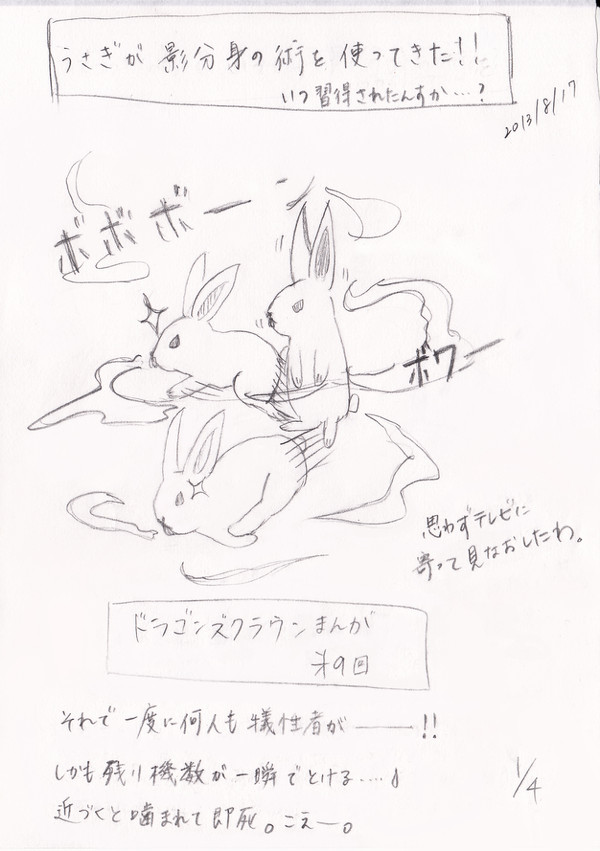 うさぎが 影分身の術を 使ってきた!!
いつ習得されたんすか…?
2013/8/17
ボボボーン
ボワー
思わずテレビに
寄って見なおしたわ。
ドラゴンズクラウンまんが
第9回
それで 一度に何人も 犠牲者が――!!
しかも残り機数が一瞬でとける‥‥♪
近づくと噛まれて即死。こえー。
1/4